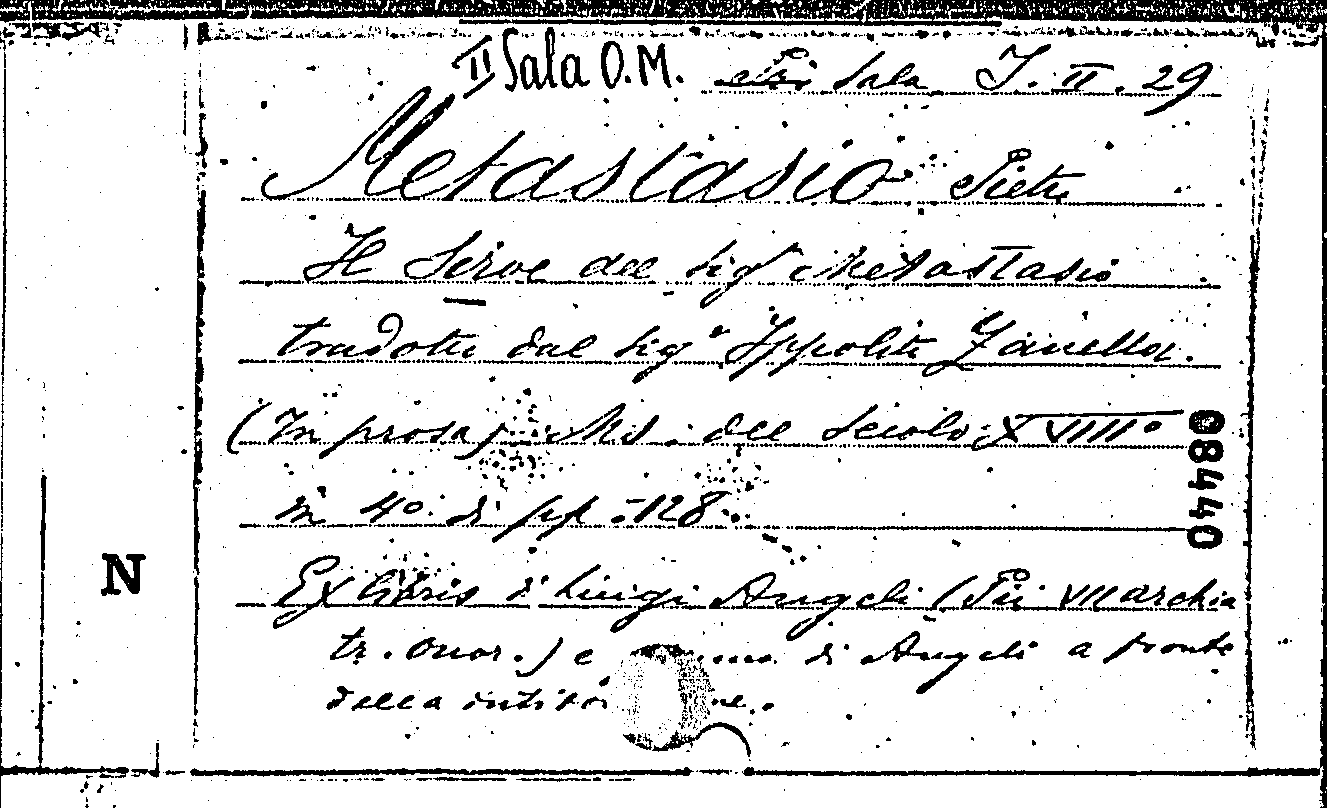 II Sala O.M. Sala I. II. 29
Metastasio Pietro
Il Siroe del sigr Metastasio
tradotto dal sigr Ippolito Zanella.
(In prosa) Ms. del secolo XVIIIIo
in 4o di pp. 128.
Ex libris di Luigi Angeli (Pii VII archia
tr. onor.) e di Angeli a fronte
della
08440
N